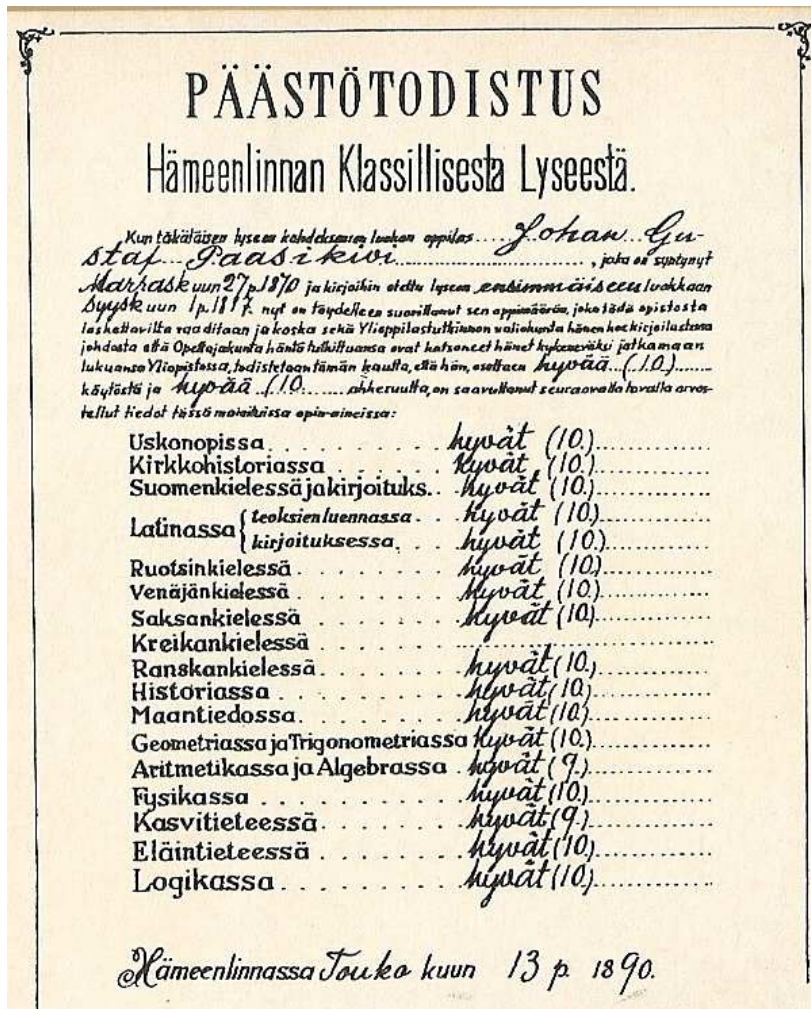 PÄÄSTÖTODISTUS
Hämeenlinnan Klassillisesta Lyseestä.
Kun täkäläisen lyseon kahdeksannen luokan oppilas Johan Gu-
staf Paasikivi, joka on syntynyt
Marraskuun 27 p. 1870 ja kirjoihin otettu lyseon ensimmäiseen luokkaan
Syyskuun 1 p. nyt on täydelleen suorittanut sen oppimäärän, joka tädä opistosta
laskettavilta vaaditaan ja koska sekä Ylioppilastutkinnon valiokunta hänen koekirjoitustensa
johdosta että Opettajakunta häntä tutkittuansa ovat katsoneet hänet kykeneväksi jatkamaan
lukuansa Yliopistossa, todistetaan tämän kautta, että hän, osottaen hyvää (10.)
käytöstä ja hyvää (10. ahkeruutta, on saavuttanut seuraavalla tavalla arvos-
tellut tiedot tässä mainituissa opin-aineissa:
Uskonopissa hyvät (10.)
Kirkkohistoriassa hyvät (10.)
Suomenkielessä ja kirjoituks. hyvät (10.)
Latinassa { teoksien luennassa hyvät (10.)
kirjoituksessa hyvät (10.)
Ruotsinkielessä hyvät (10.)
Venäjänkielessä hyvät (10.)
Saksankielessä hyvät (10)
Kreikankielessä
Ranskankielessä hyvät (10.)
Historiassa hyvät (10.)
Maantiedossa hyvät (10.)
Geometriassa ja Trigonometriassa hyvät (10.)
Aritmetikassa ja Algebrassa hyvät (9.)
Fysikassa hyvät (10.)
Kasvitieteessä hyvät (9.)
Eläintieteessä hyvät (10.)
Logikassa hyvät (10.)
Hämeenlinnassa Touko kuun 13 p. 1890.